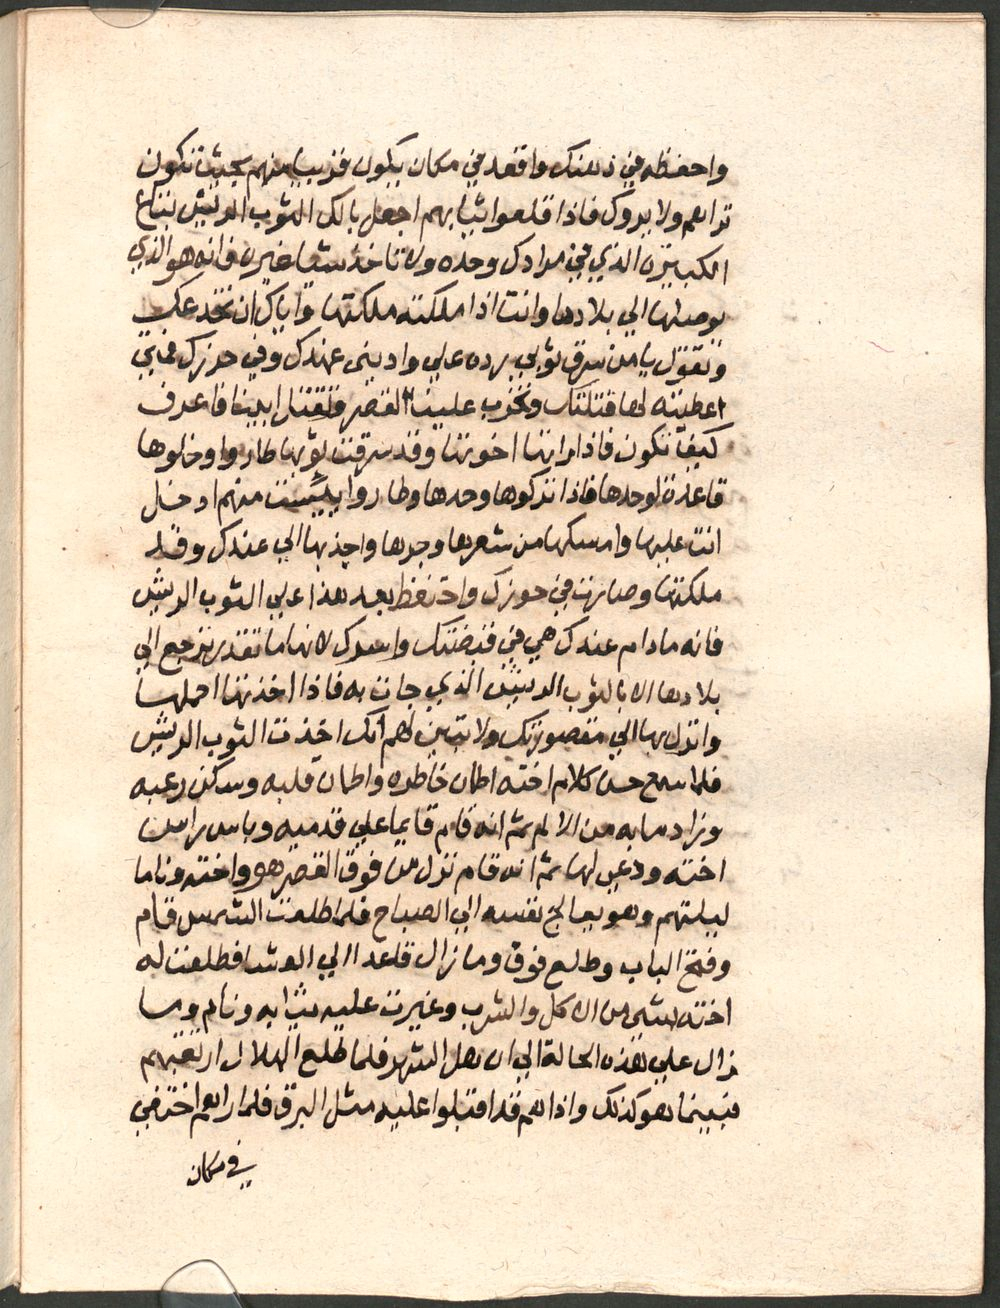 واحفظه في ذهنك واقعد في مكان يكون قريبا منهم بحيث تكون
تراهم ولا يروك فاذا قلعوا ثيابهم اجعل بالك الثوب الريش بتاع
الكبيره الذي في مرادك وحده ولا تاخذ شيا غيره فانه هو الذي
يوصلها الي بلادها وانت اذا ملكته ملكتها واياك ان تخدعك
وتقول يا من سرق ثوبي رده علي واديني عندك وفي حوزك فان
اعطيته لها قتلتك وتخرب علينا القصر وتقتل ابينا فاعرف
كيف تكون فاذا راتها اخوتها وقد سرقت ثوبها طاروا وخلوها
قاعدة لوحدها فاذا تركوها وحدها وطاروا يئست منهم ادخل
انت عليها وامسكها من شعرها وجرها واجذبها الي عندك وقد
ملكتها وصارت في حوزك واحتفظ بعد هذا علي الثوب الريش
فانه مادام عندك هي في قبضتك واسرك لانها ما تقدر ترجع الي
بلادها الا بالثوب الريش الذي جات به فاذا اخذتها احملها
وانزل بها الي مقصورتك ولا تبين لهم انك اخذت الثوب الريش
فلما سمع حسن كلام اخته اطمان خاطره واطمان قلبه وسكن رعبه
وزاد ما به من الالم ثم انه قام قايما علي قدميه وباس راس
اخته ودعي لها ثم انه قام نزل من فوق القصر هو واخته وناما
ليلتهم وهو يعالج نفسه الي الصباح فلما طلعت الشمس قام
وفتح الباب وطلع فوق وما زال قاعد االي العشا فطلعت له
اخته بشي من الاكل والشرب وغيرت عليه ثيابه ونام وما
زال علي هذه الحالة الي ان هل الشهر فلما طلع الهلال ارتقبهم
فبينما هو كذلك واذا هم قد اقبلوا عليه مثل البرق فلما راهم اختفي
في مكان